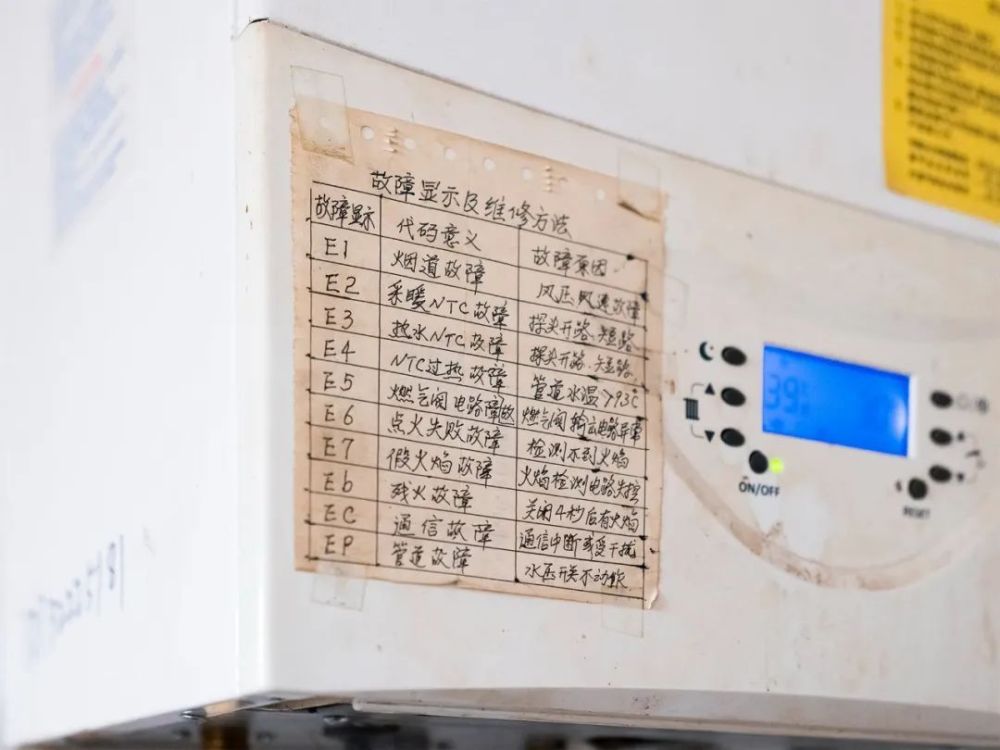 故障显示及维修方法
故障显示 代码意义 故障原因
E1 烟道故障 风压、风速故障
E2 采暖NTC故障 探头开路、短路
E3 热水NTC故障 探头开路、短路
E4 NTC过热故障 管道水温>93℃
E5 燃气阀电路障故 燃气阀输出电路异常
E6 点火失败故障 检测不到火焰
E7 假火焰故障 火焰检测电路失控
Eb 残火故障 关闭4秒后有火焰
EC 通信故障 通信中断或受干扰
EP 管道故障 水压开关不动作
39
ON/OFF
RESET